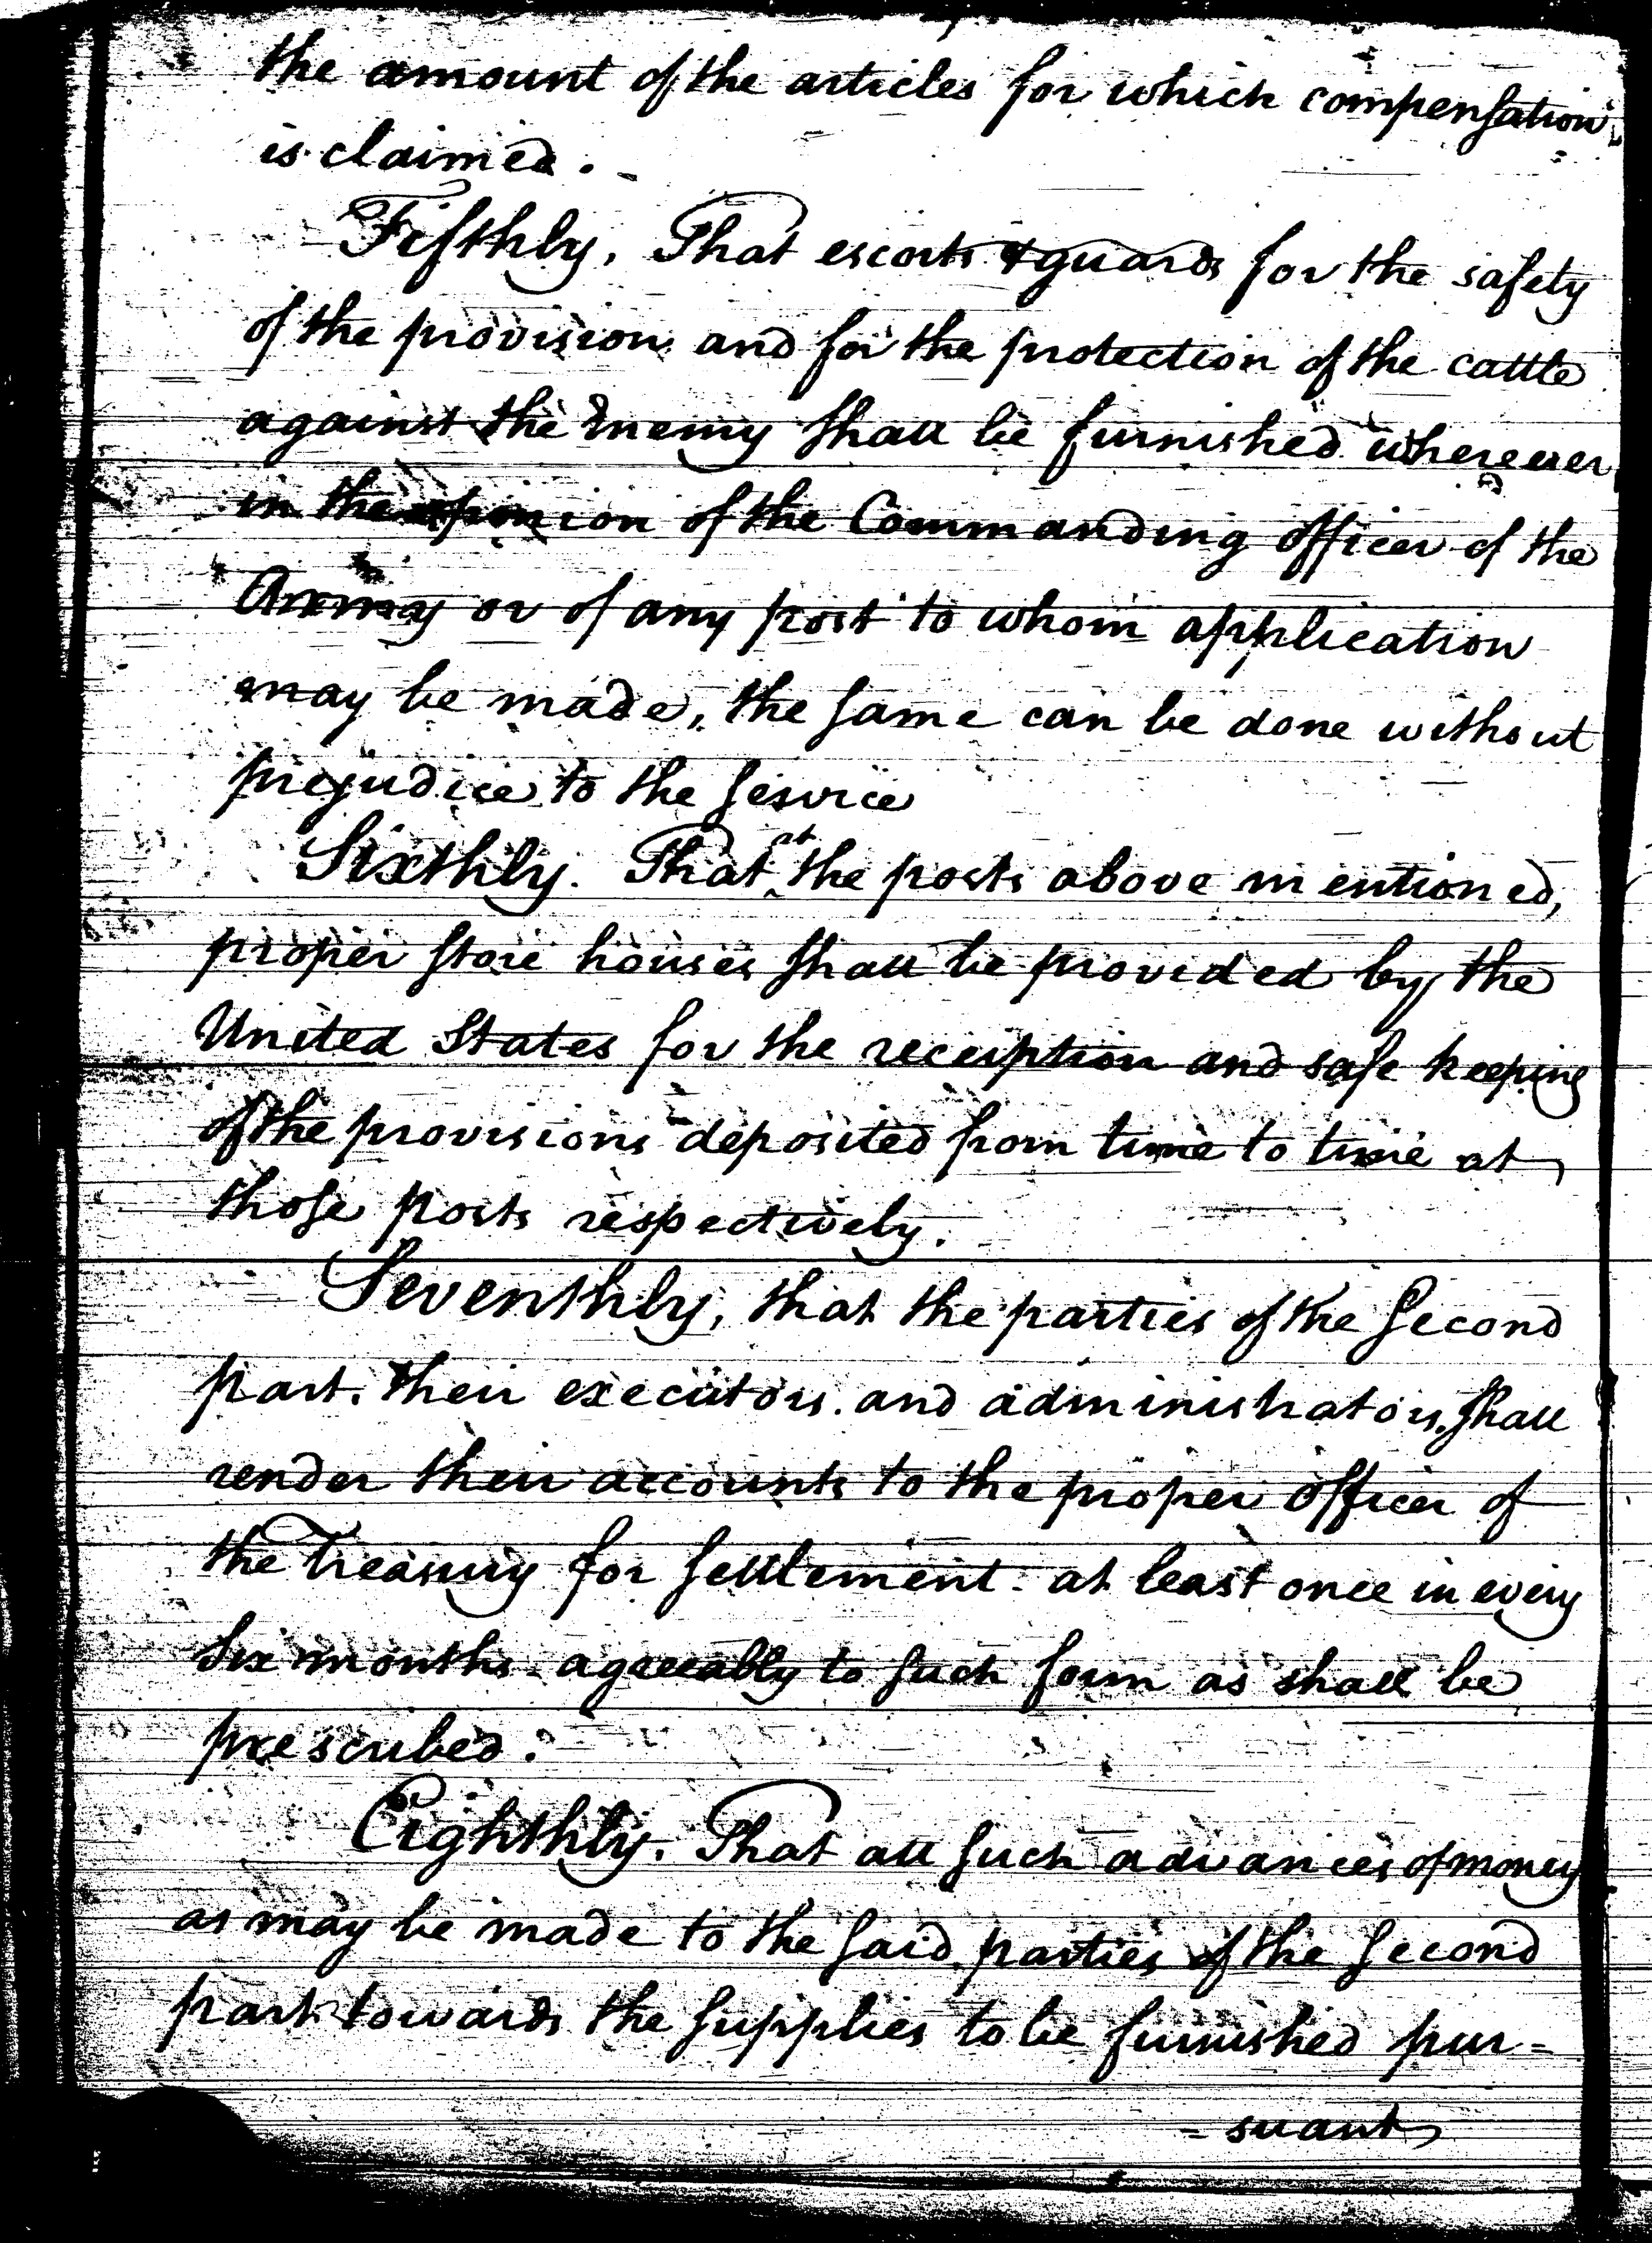 the amount of the articles for which compensation
is claimed.
Fifthly, That escorts & guards for the safety
of the provision and for the protection of the cattle
against the Enemy shall be furnished wherever
in the opinion of the Commanding officer of the
Army or of any post to whom application
may be made, the same can be done without
prejudice to the service
Sixthly. That at the posts above mentioned,
proper store houses shall be provided by the
United States for the reception and safe keeping
of the provisions deposited from time to time at
those posts respectively.
Seventhly, that the parties of the second
part, their executors and administrators, shall
render their accounts to the proper officer of
the Treasury for settlement at least once in every
six months agreeably to such form as shall be
prescribed.
Eighthly. That all such advances of money
as may be made to the said parties of the second
part towards the supplies to be furnished pur=
=suant